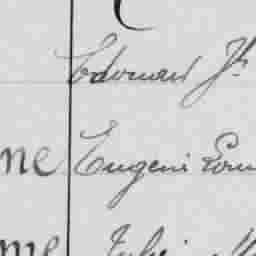 Edouard Jh
ne Eugeni Loui
me Julie